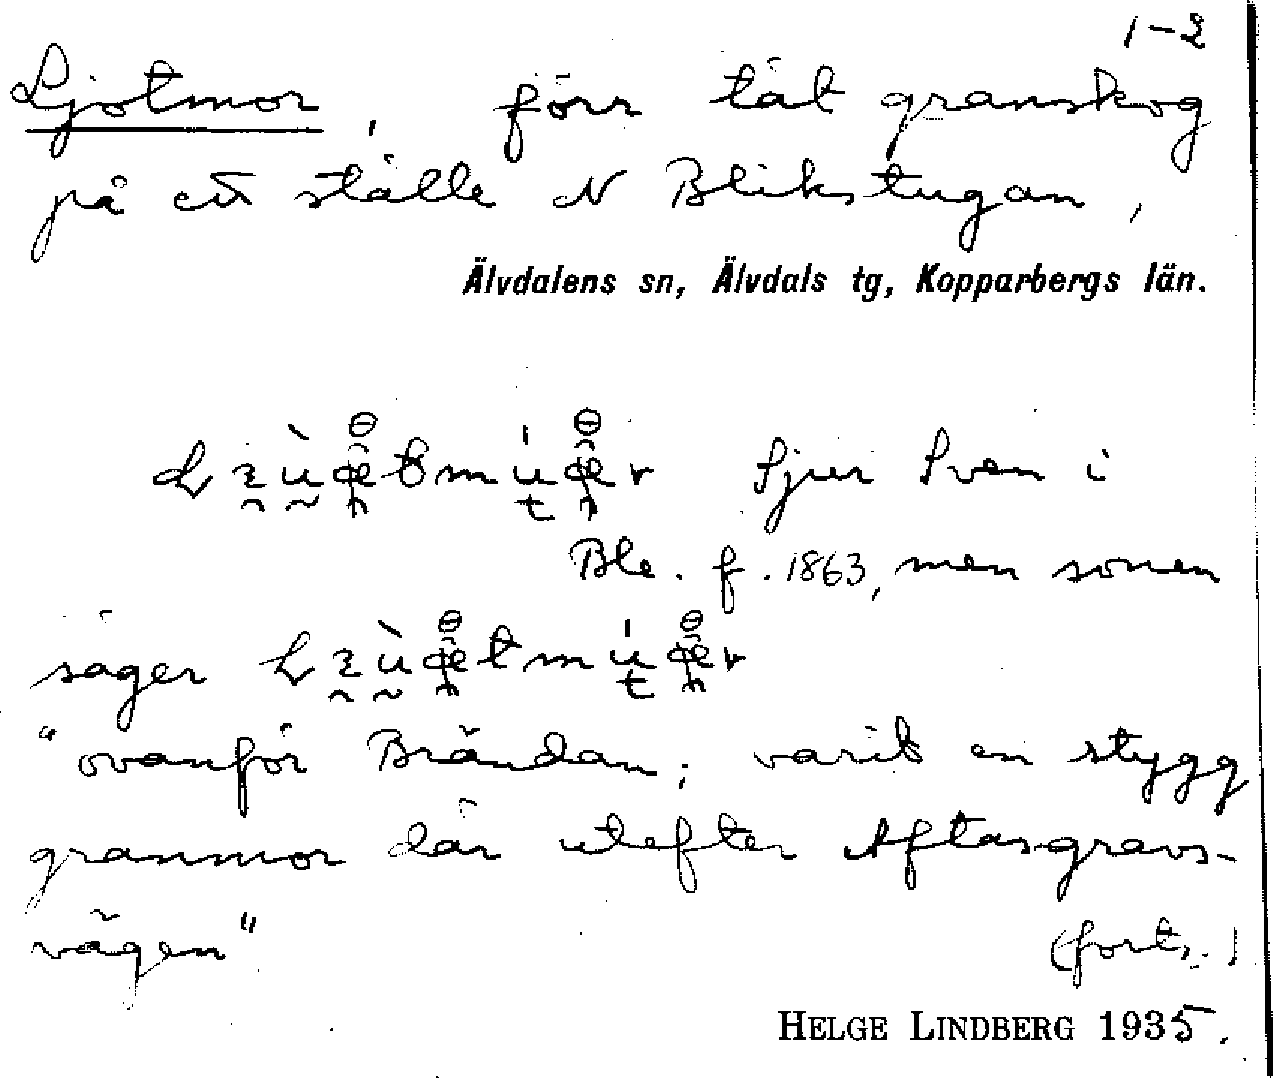 1-2
Ljotmor, förr tät granskog
på ett ställe N Blikstugan,
Älvdalens sn, Älvdals tg, Kopparbergs län.
Sjur Sven i
Ble. f. 1863, men sonen
säger
"ovanför Brändan; varit en stygg
granmor där utefter Aftasgravs-
vägen"
(forts.)
HELGE LINDBERG 1935.